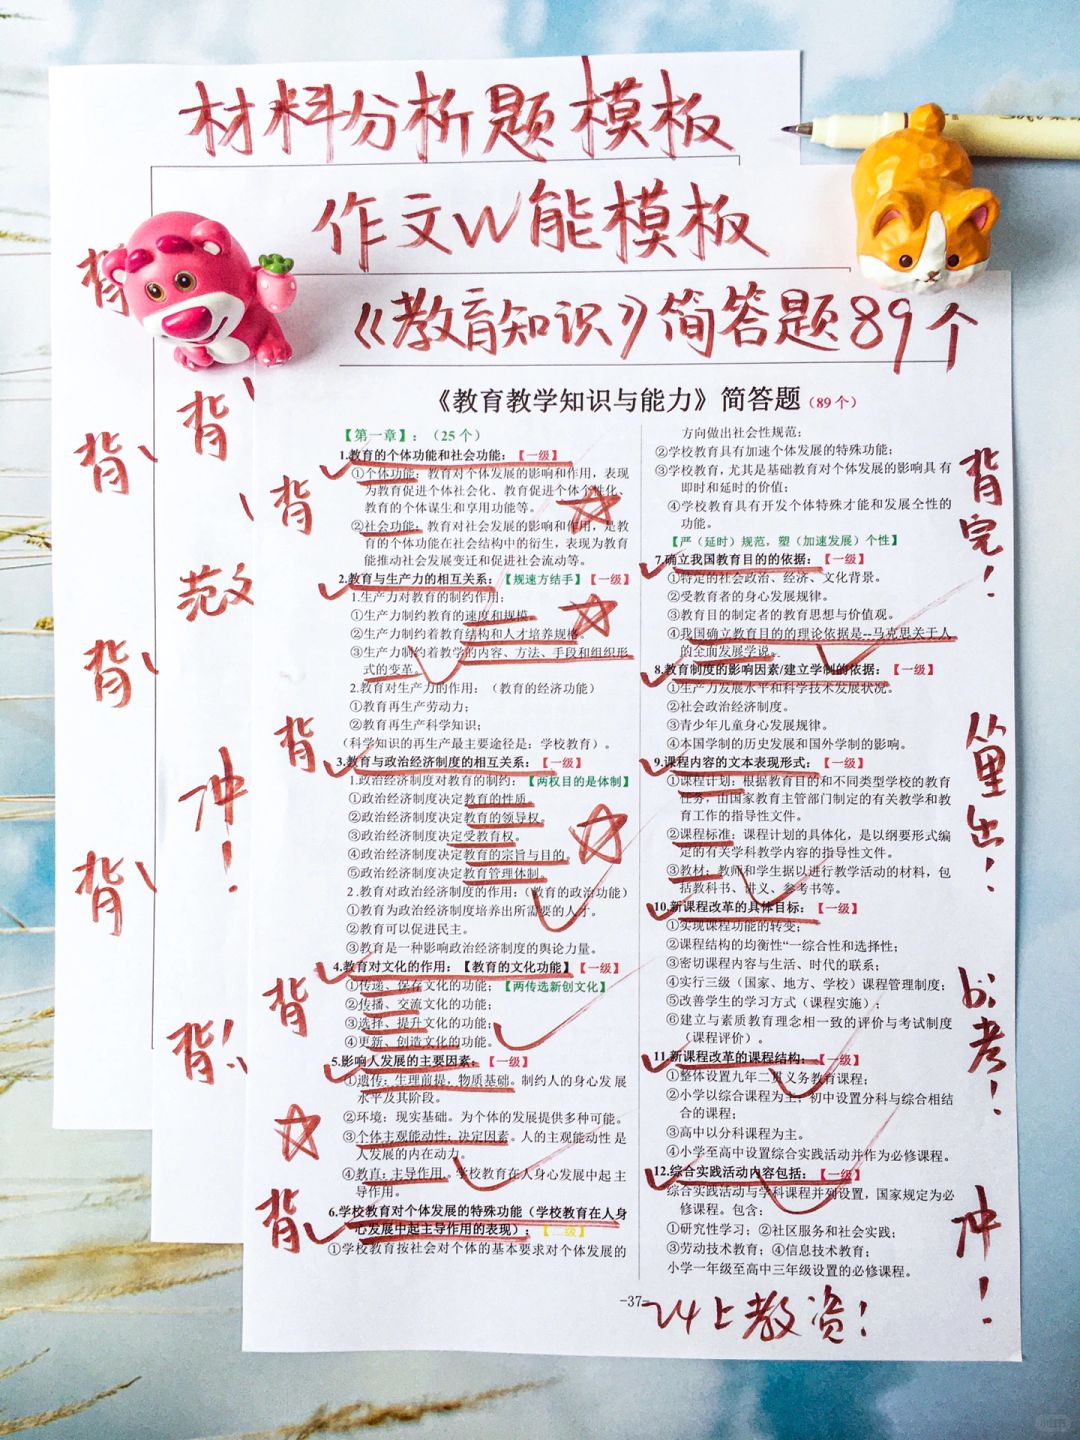 材料分析题模板
作文W能模板
《教育知识》简答题89个
《教育教学知识与能力》简答题（89个）
【第一章】：（25个）
1.教育的个体功能和社会功能：【一级】
①个体功能：教育对个体发展的影响和作用，表现
为教育促进个体社会化、教育促进个体个性化、
教育的个体谋生和享用功能等。
②社会功能：教育对社会发展的影响和作用，是教
育的个体功能在社会结构中的衍生，表现为教育
能推动社会发展变迁和促进社会流动等。
2.教育与生产力的相互关系：【规速方结手】【一级】
1.生产力对教育的制约作用：
①生产力制约教育的速度和规模。
②生产力制约着教育结构和人才培养规格。
③生产力制约着教学的内容、方法、手段和组织形
式的变革。
2.教育对生产力的作用：（教育的经济功能）
①教育再生产劳动力；
②教育再生产科学知识；
（科学知识的再生产最主要途径是：学校教育）。
3.教育与政治经济制度的相互关系：【一级】
1.政治经济制度对教育的制约：【两权目的是体制】
①政治经济制度决定教育的性质。
②政治经济制度决定教育的领导权。
③政治经济制度决定受教育权。
④政治经济制度决定教育的宗旨与目的。
⑤政治经济制度决定教育管理体制。
2.教育对政治经济制度的作用：（教育的政治功能）
①教育为政治经济制度培养出所需要的人才。
②教育可以促进民主。
③教育是一种影响政治经济制度的舆论力量。
4.教育对文化的作用：【教育的文化功能】【一级】
①传递、保存文化的功能；【两传选新创文化】
②传播、交流文化的功能；
③选择、提升文化的功能；
④更新、创造文化的功能。
5.影响人发展的主要因素：【一级】
①遗传：生理前提，物质基础。制约人的身心发展
水平及其阶段。
②环境：现实基础。为个体的发展提供多种可能。
③个体主观能动性：决定因素。人的主观能动性是
人发展的内在动力。
④教育：主导作用。学校教育在人身心发展中起主
导作用。
6.学校教育对个体发展的特殊功能（学校教育在人身
心发展中起主导作用的表现）：【二级】
①学校教育按社会对个体的基本要求对个体发展的
方向做出社会性规范；
②学校教育具有加速个体发展的特殊功能；
③学校教育，尤其是基础教育对个体发展的影响具有
即时和延时的价值；
④学校教育具有开发个体特殊才能和发展全性的
功能。
【严（延时）规范，塑（加速发展）个性】
7.确立我国教育目的的依据：【一级】
①特定的社会政治、经济、文化背景。
②受教育者的身心发展规律。
③教育目的制定者的教育思想与价值观。
④我国确立教育目的的理论依据是--马克思关于人
的全面发展学说。
8.教育制度的影响因素/建立学制的依据：【一级】
①生产力发展水平和科学技术发展状况。
②社会政治经济制度。
③青少年儿童身心发展规律。
④本国学制的历史发展和国外学制的影响。
9.课程内容的文本表现形式：【一级】
①课程计划：根据教育目的和不同类型学校的教育
任务，由国家教育主管部门制定的有关教学和教
育工作的指导性文件。
②课程标准：课程计划的具体化，是以纲要形式编
定的有关学科教学内容的指导性文件。
③教材：教师和学生据以进行教学活动的材料，包
括教科书、讲义、参考书等。
10.新课程改革的具体目标：【一级】
①实现课程功能的转变；
②课程结构的均衡性一综合性和选择性；
③密切课程内容与生活、时代的联系；
④实行三级（国家、地方、学校）课程管理制度；
⑤改善学生的学习方式（课程实施）；
⑥建立与素质教育理念相一致的评价与考试制度
（课程评价）。
11.新课程改革的课程结构：【一级】
①整体设置九年一贯义务教育课程；
②小学以综合课程为主；初中设置分科与综合相结
合的课程；
③高中以分科课程为主。
④小学至高中设置综合实践活动并作为必修课程。
12.综合实践活动内容包括：【一级】
综合实践活动与学科课程并列设置，国家规定为必
修课程。包含：
①研究性学习；②社区服务和社会实践；
③劳动技术教育；④信息技术教育；
小学一年级至高中三年级设置的必修课程。
-37-
24上教资！
背
背
背
背
背
范文
冲！
背！
背
背
背
背
背完！
从里出！
必考！
冲！
小红书